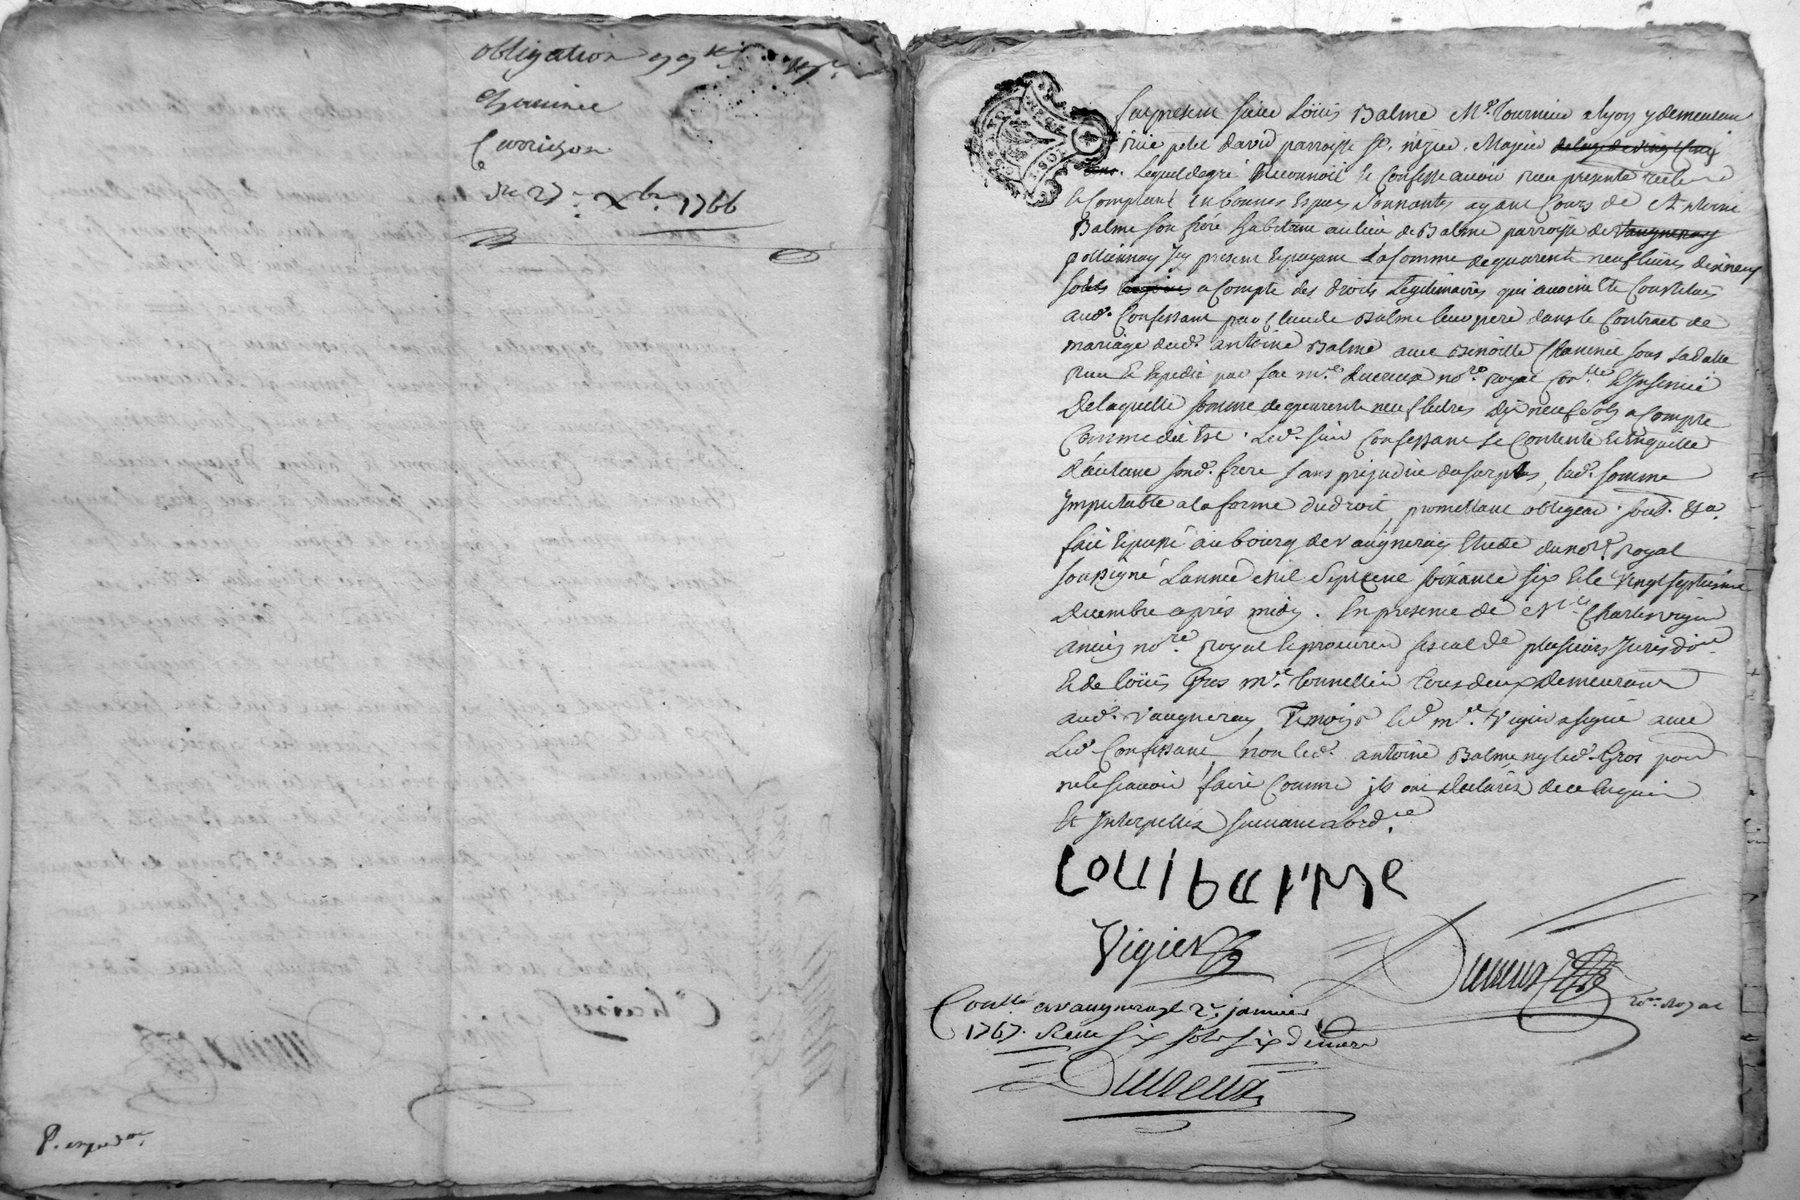 obligation
Chavinée
Carrichon
du 27e xbre 1766
P. expedon
Fut present sieur Loüis Balme Me. tourneur a lyon y demeurant
rüe petit david parroisse st. nizier, Majeur
Lequel degré Reconnoit et Confesse avoir receu presentement
et Comptant en bonnes Especes sonnantes ayant Cours de Antoine
Balme son frere habitant au lieu de Balme parroisse de Vaugneray
pollionnay icy present Et payant La somme de quarente neuf livres dixneuf
sols a Compte des droits Legitimaires qui avoient Eté Constitués
aud. Confessant par Claude Balme leur pere dans le Contract de
mariage dud. antoine Balme avec Benoitte Chavinée sous sa datte
receu Et Expedié par feu me. ducreux nore. royal Conlle Et Insinué
De laquelle somme de quarente neuf livres dix neuf sols a Compte
Comme dit Est. Led. sieur Confessant se Contente Et en quitte
d'autant sond. frere sans prejudice du surplus, lad. somme
Imputable a la forme du droit, promettant obligeant. soud. &a.
fait Et passé au bourg de Vaugneray Etude du nore. royal
soussigné L'année Mil Sept Cent soixante six Et le vingt septieme
Decembre après midy. En presence de Me. Charles vigier
ancien nore. royal Et procureur fiscal de plusieurs Jurisdon.
Et de loüis Gros me. tonnellier tous deux Demeurant
aud. Vaugneray Temoins led. me. Vigier a signé avec
Led. Confessant, non led. antoine Balme ny led. Gros pour
ne le scavoir faire Comme ils ont declarés de ce Enquis
Et Interpellés suivant L'ordce.
LOUIBALME
Vigier
Ducreux
nore. Royal
Conlle a vaugneray le 2e. janvier
1767. Receu six sols six deniers
Ducreux